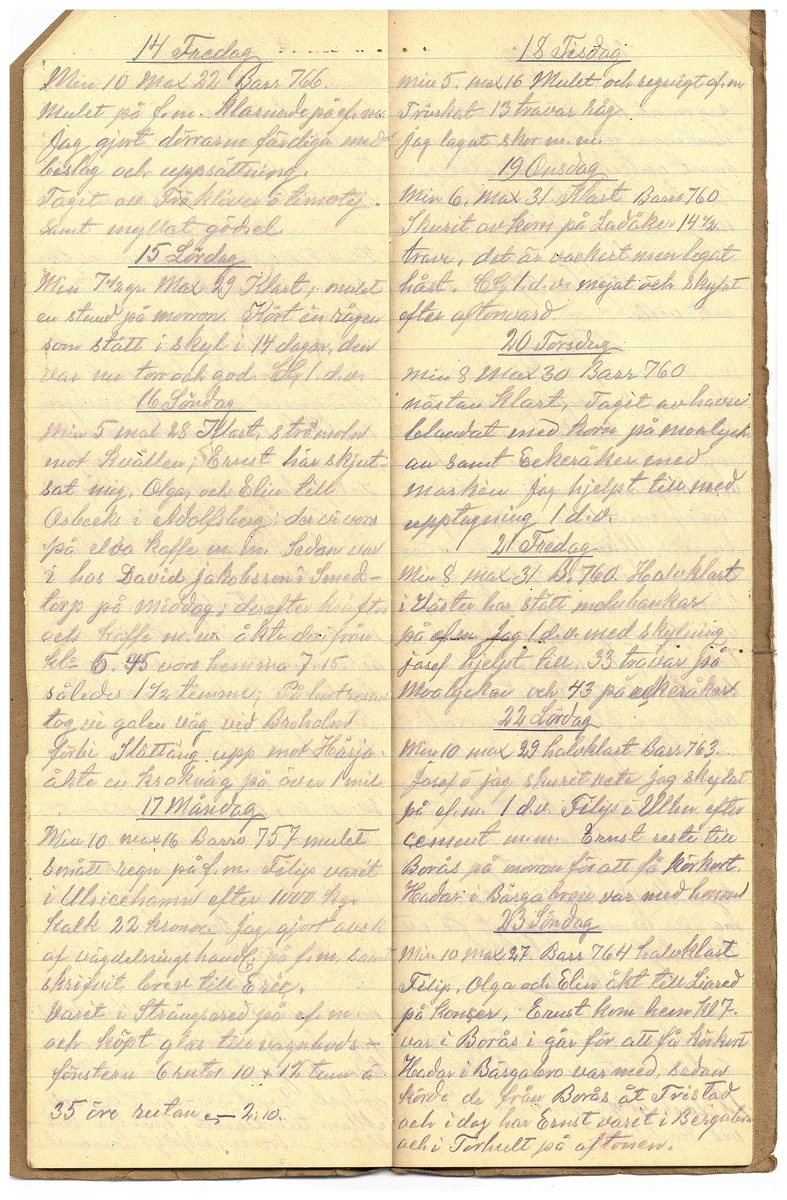 14 Fredag
Min 10 Max 22 Barr 766.
Mulet på f.m. klarnade på ef.m.
Jag gjort dörrarne färdiga med
beslag och uppsättning.
Taget av Frö klöver o timotej.
samt myllat gödsel
15 Lördag
Min 7½ gr Max 29 Klart, mulet
en stund på morron. Kört in rågen
som stått i skyl i 14 dagar, den
var nu torr och god. 1 d.v.
16 Söndag
Min 5 max 28 Klart, strömoln
mot kvällen, Ernst här skjut-
sat mig, Olga, och Elin till
Asbecks i Adolfsberg der vi voro
på elva kaffe m.m. Sedan var
vi hos David Jakobsson i Smed-
torp på middag, derefter
och kaffe m.m. åkte der från
kl= 5.45 voro hemma 7.15.
således 1½ timme, På hemresan
tog vi galen väg vid Broholm
förbi Slättäng upp mot Härja
åkte en krokväg på över 1 mil
17 Måndag
Min 10 max 16 Barro 757 mulet
smått regn på f.m. Felip varit
i Ulricehamn efter 1000 kg.
kalk 22 kronor. Jag gjort avsk
af vägdelningshandl. på f.m. samt
skrifvit brev till Eric.
Varit i Strängsered på ef.m.
och köpt glas till vagnbods-
fönstern 6 rutor 10 x 12 tum à
35 öre rutan = 2.10.
18 Tisdag
min 5. max 16 Mulet och regnigt ef.m
Tröskat 13 travar råg
jag lagat skor m.m.
19 Onsdag
Min 6. Max 31 Klart Barro 760
Skurit av korn på Ladåker 14½
trave, det är vackert men legat
hårt. 1 d.v. mejat och skylat
efter aftonvard
20 Torsdag
Min 8 Max 30 Barr 760
nästan klart, Taget av havre
blandat med korn på moalyck
an samt Eckeråker med
maskin Jag hjelpt till med
upptagning 1 d.v.
21 Fredag
Min 8 max 31 B. 760. Halvklart
i Väster har stått molnbankar
på ef.m Jag 1 d.v. med skylning
josef hjelpt till, 33 travar på
Moalyckan och 43 på eckeråker
22 Lördag
Min 10 max 29 halvklart Barr 763.
Josef o jag skurit vete jag skylat
på ef.m. 1 d.v. Felip i Ulhn efter
cement m.m. Ernst reste till
Borås på morron för att få körkort.
Hadar i Bärgabron var med honom
23 Söndag
Min 10 max 27 Barr 764 halvklart
Felip, Olga och Elin åkt till Liared
på konser, Ernst kom hem kl 7.
var i Borås i går för att få körkort
Hadar i Bärgabro var med, sedan
körde de från Borås åt Fristad
och i dag har Ernst varit i Bergabro
och i Torhult på aftonen.